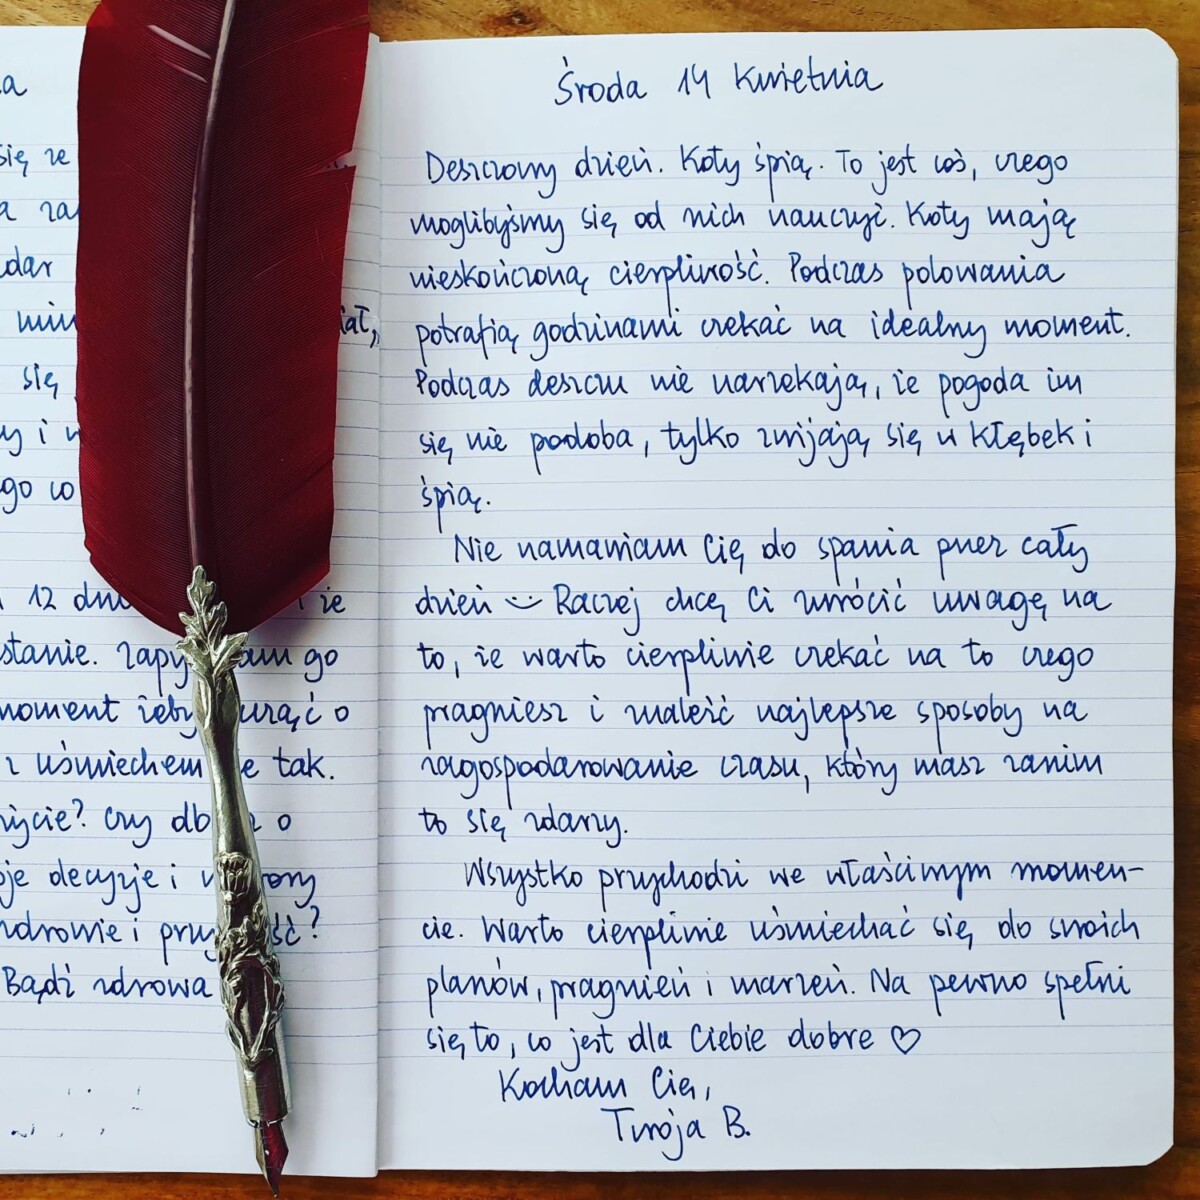 a
się ze
a
dar
iał,
się
y i
go co
12 dni że
stanie. go
moment o
z uśmiechem że tak.
życie? Czy o
je decyzje i
zdrowie i
Bądź zdrowa
Środa 14 kwietnia
Deszczowy dzień. Koty śpią. To jest coś, czego
moglibyśmy się od nich nauczyć. Koty mają
nieskończoną cierpliwość. Podczas polowania
potrafią godzinami czekać na idealny moment.
Podczas deszczu nie narzekają, że pogoda im
się nie podoba, tylko zwijają się w kłębek i
śpią.
Nie namawiam Cię do spania przez cały
dzień Raczej chcę Ci zwrócić uwagę na
to, że warto cierpliwie czekać na to czego
pragniesz i znaleźć najlepsze sposoby na
zagospodarowanie czasu, który masz zanim
to się zdarzy.
Wszystko przychodzi we właściwym momen-
cie. Warto cierpliwie uśmiechać się do swoich
planów, pragnień i marzeń. Na pewno spełni
się to, co jest dla Ciebie dobre ♡
Kocham Cię,
Twoja B.